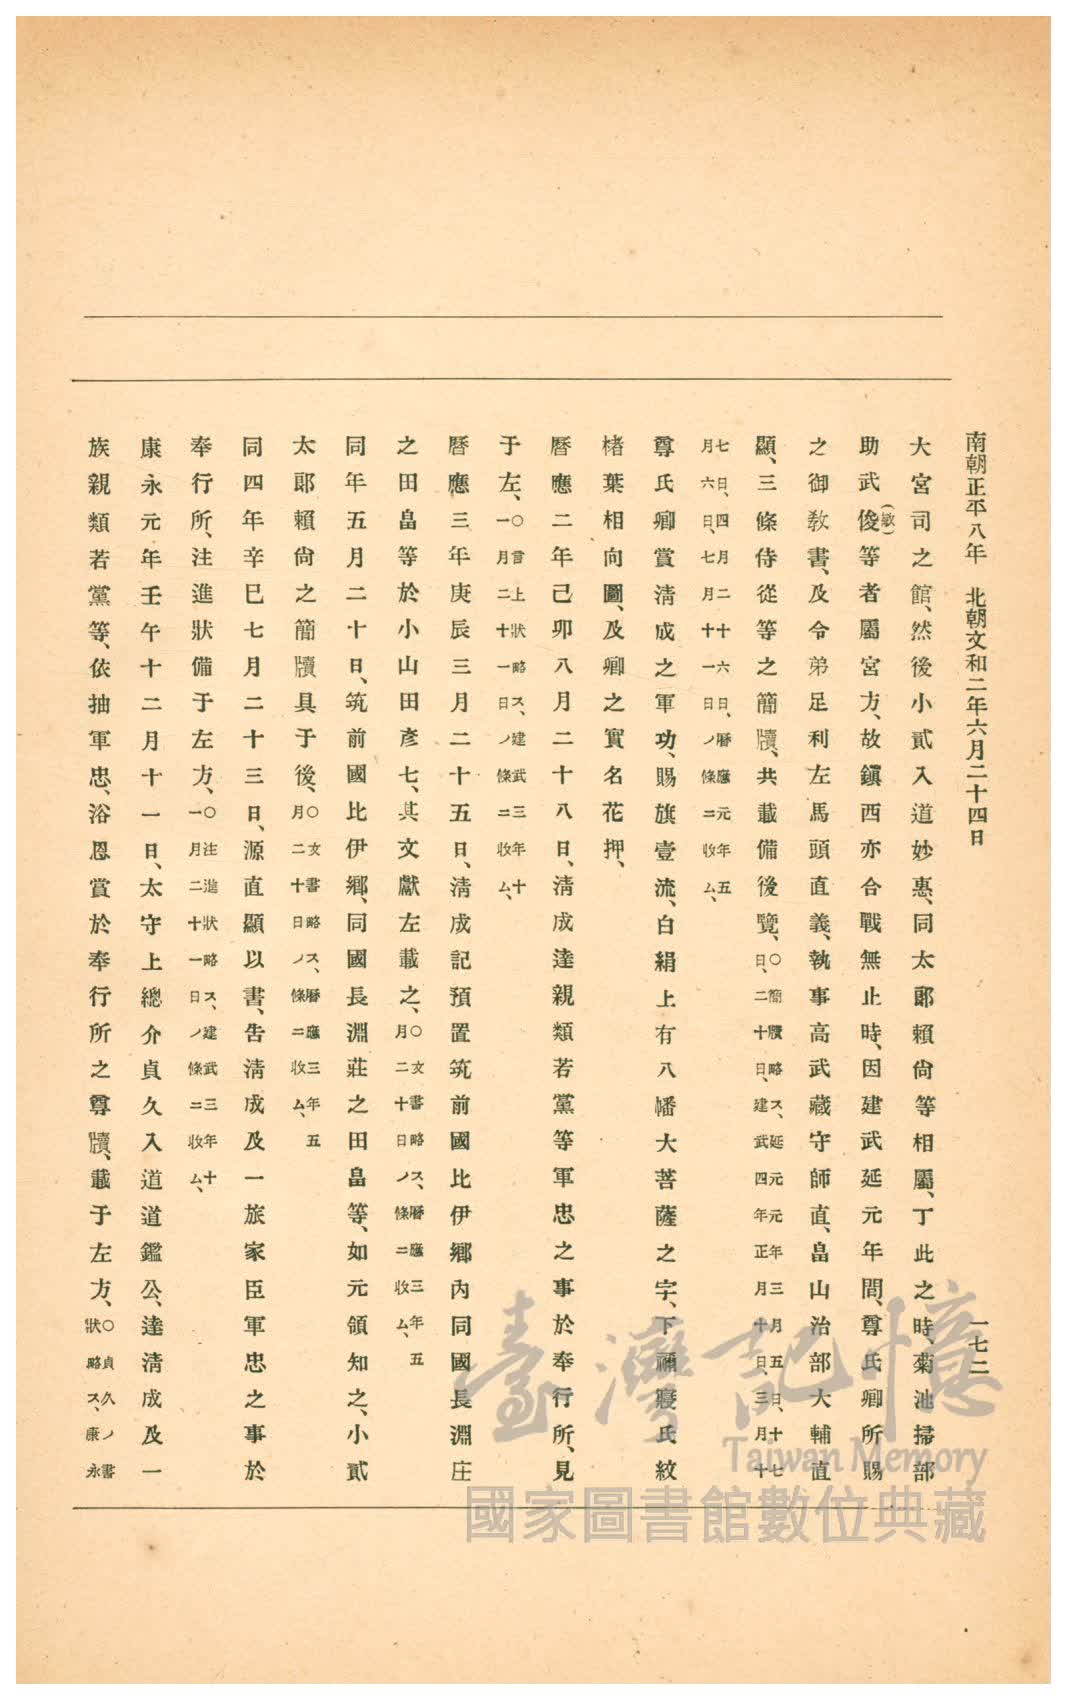 南朝正平八年　北朝文和二年六月二十四日
一七二
大宮司之館、然後小貳入道妙惠、同太郞賴尙等相屬、丁此之時、菊池掃部
助武俊(敏)等者屬宮方、故鎭西亦合戰無止時、因建武延元年間、尊氏卿所賜
之御敎書、及令弟足利左馬頭直義、執事高武藏守師直、畠山治部大輔直
顯、三條侍從等之簡牘、共載備後覽、○簡牘略ス、延元元年三月五日、十七日、二十日、建武四年正月十日、三月十
七日、四月二十六日、曆應元年五月六日、七月十一日ノ條ニ收ム、
尊氏卿賞淸成之軍功、賜旗壹流、白絹上有八幡大菩薩之字、下禰寢氏紋
楮葉相向圖、及卿之實名花押、
曆應二年己卯八月二十八日、淸成達親類若黨等軍忠之事於奉行所、見
于左、○言上狀略ス、建武三年十一月二十一日ノ條ニ收ム、
曆應三年庚辰三月二十五日、淸成記預置筑前國比伊鄕內同國長淵庄
之田畠等於小山田彥七、其文獻左載之、○文書略ス、曆應三年五月二十日ノ條ニ收ム、
同年五月二十日、筑前國比伊鄕、同國長淵莊之田畠等、如元領知之、小貳
太郞賴尙之簡牘具于後、○文書略ス、曆應三年五月二十日ノ條ニ收ム、
同四年辛巳七月二十三日、源直顯以書、吿淸成及一族家臣軍忠之事於
奉行所、注進狀備于左方、○注進狀略ス、建武三年十一月二十一日ノ條ニ收ム、
康永元年壬午十二月十一日、太守上總介貞久入道道鑑公、達淸成及一
族親類若黨等、依抽軍忠、浴恩賞於奉行所之尊牘、載于左方、○貞久ノ書狀略ス、康永
臺灣記憶
Taiwan Memory
國家圖書館數位典藏